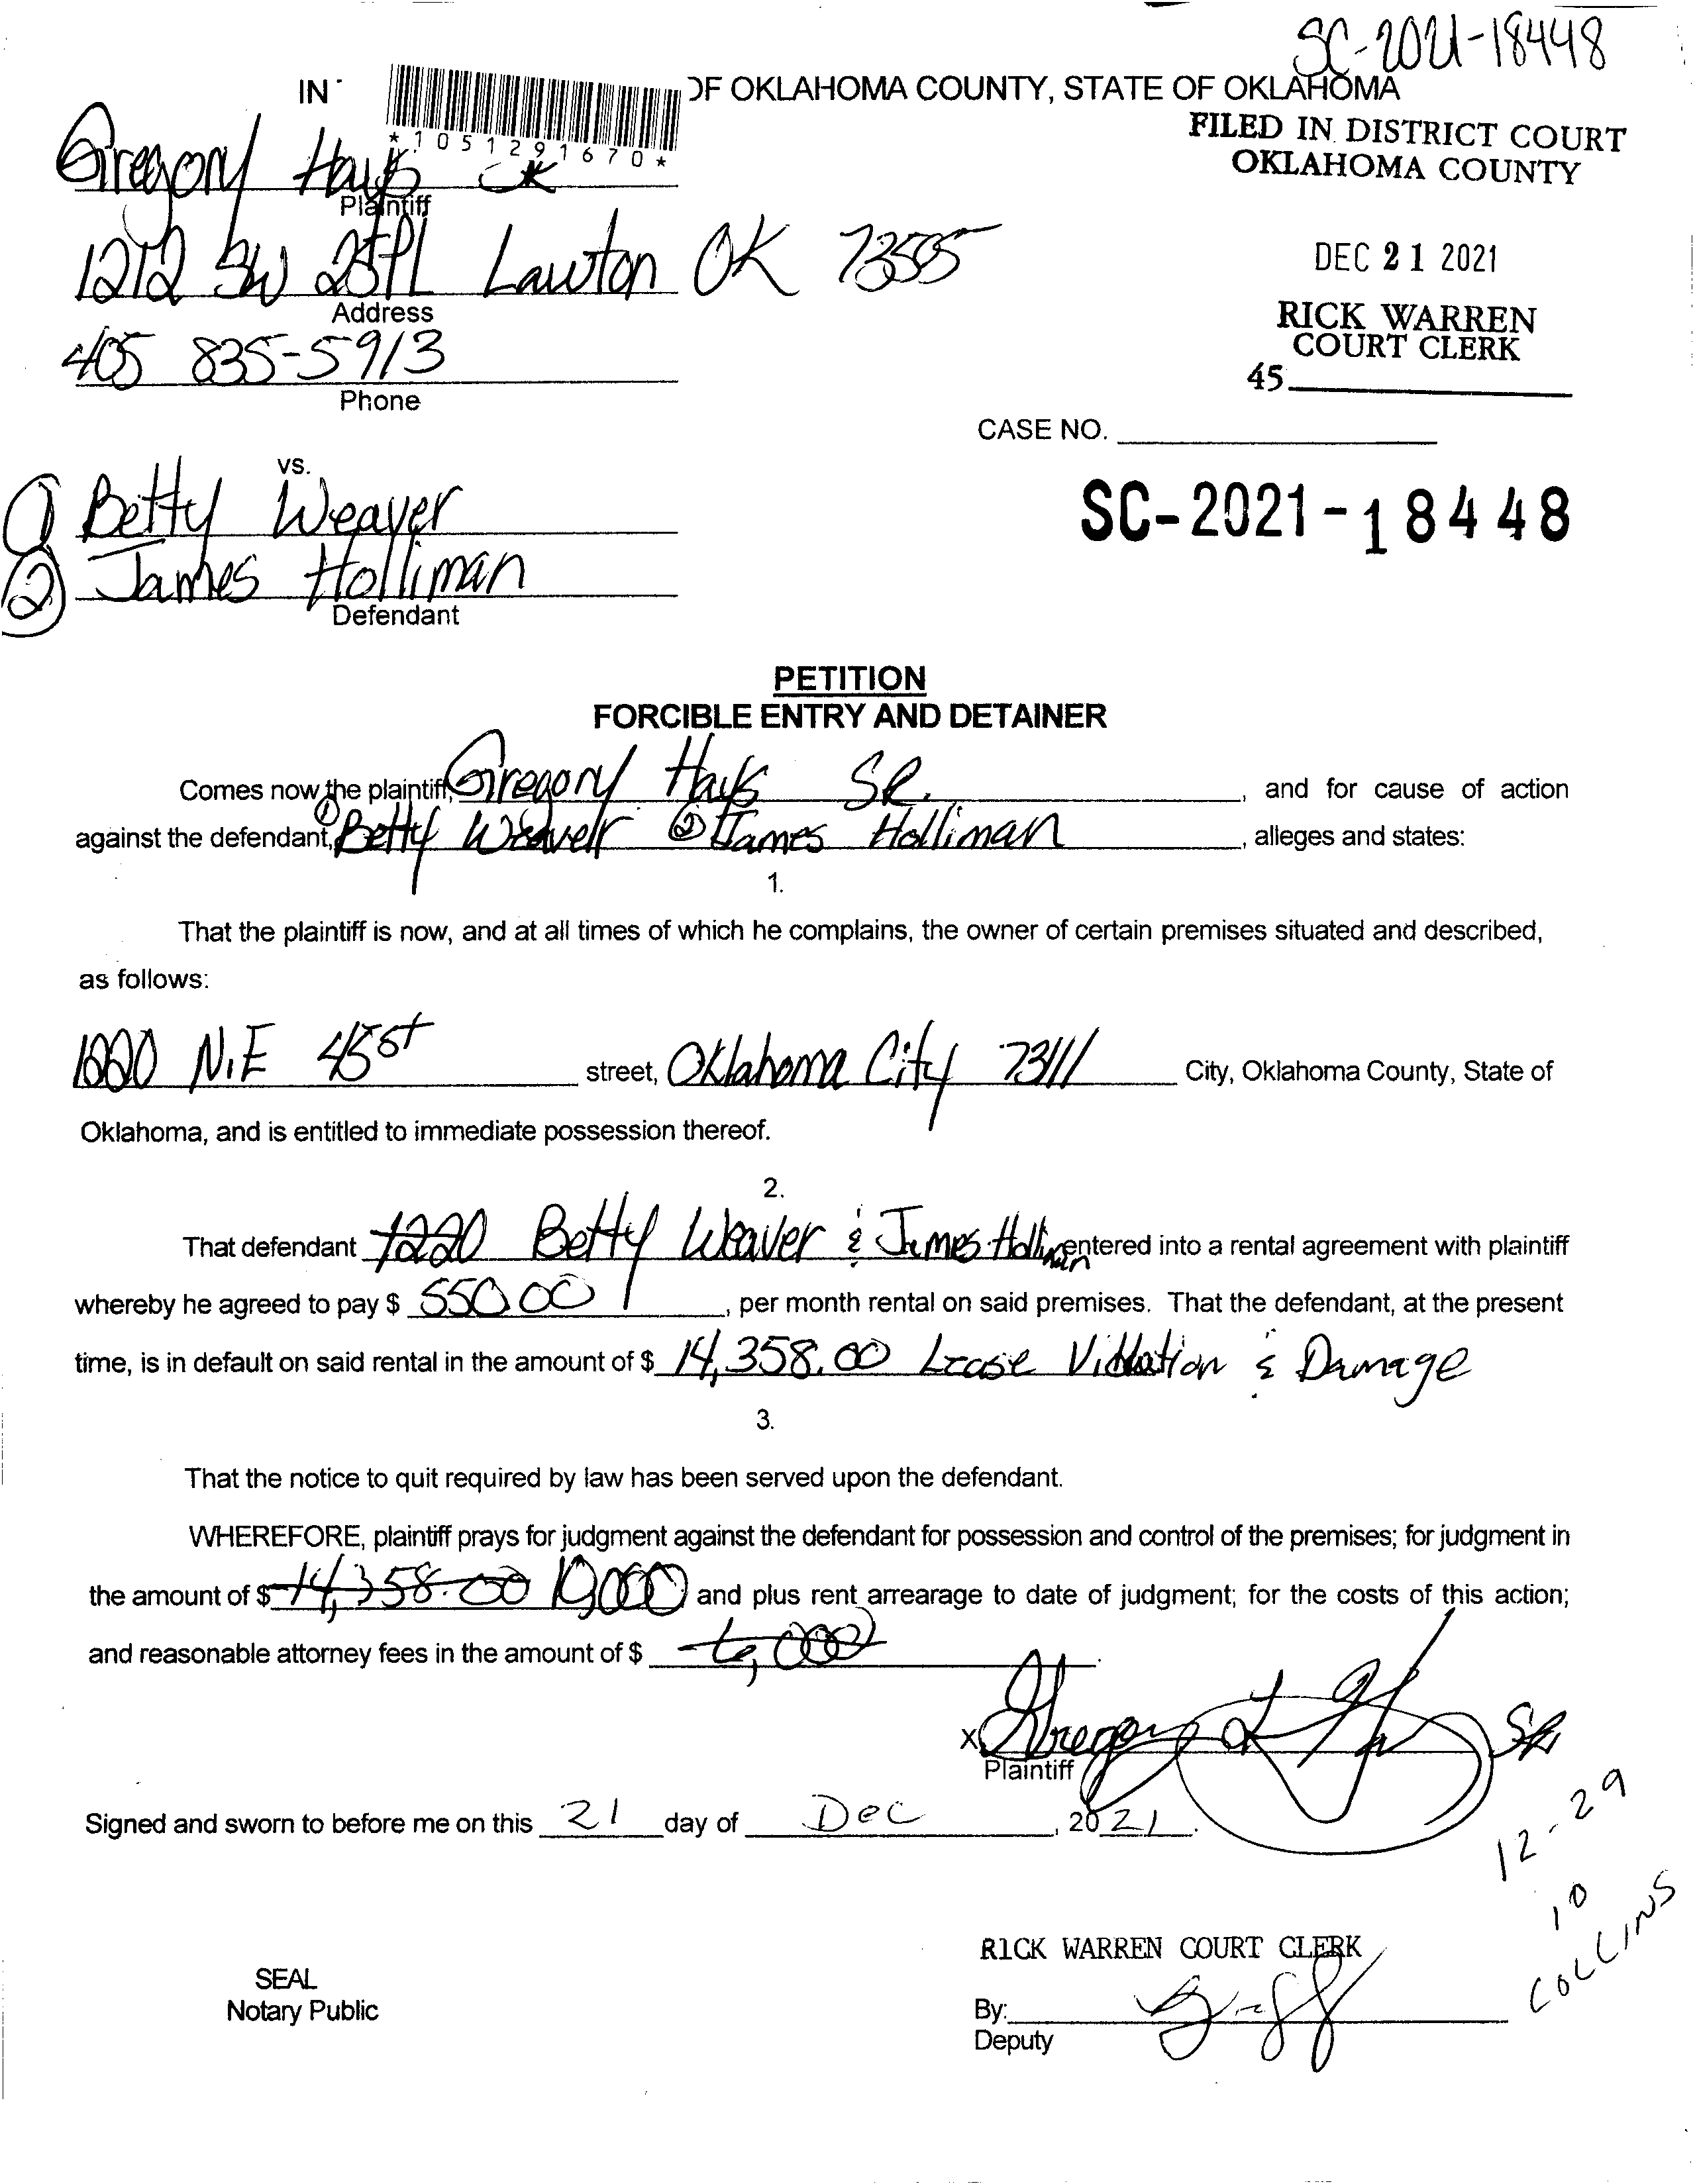 SC-2021-18448
IN OF OKLAHOMA COUNTY, STATE OF OKLAHOMA
*1051291670*
FILED IN DISTRICT COURT
OKLAHOMA COUNTY
Gregory Hays
Plaintiff
1212 SW 25 Pl Lawton OK 73505
Address
DEC 21 2021
RICK WARREN
COURT CLERK
45
405 835-5913
Phone
CASE NO.
vs.
① Betty Weaver
SC-2021-18448
② James Holliman
Defendant
PETITION
FORCIBLE ENTRY AND DETAINER
Comes now the plaintiff, Gregory Hays SR. , and for cause of action
against the defendant, ① Betty Weaver ② James Holliman , alleges and states:
1.
That the plaintiff is now, and at all times of which he complains, the owner of certain premises situated and described,
as follows:
1220 N.E 45 st street, Oklahoma City 73111 City, Oklahoma County, State of
Oklahoma, and is entitled to immediate possession thereof.
2.
That defendant 1220 Betty Weaver & James Holliman entered into a rental agreement with plaintiff
whereby he agreed to pay $ 550.00 , per month rental on said premises. That the defendant, at the present
time, is in default on said rental in the amount of $ 14,358.00 Lease Violation & Damage
3.
That the notice to quit required by law has been served upon the defendant.
WHEREFORE, plaintiff prays for judgment against the defendant for possession and control of the premises; for judgment in
the amount of $ 14,358.00 10,000 and plus rent arrearage to date of judgment; for the costs of this action;
and reasonable attorney fees in the amount of $ .
X Gregory SR
Plaintiff
Signed and sworn to before me on this 21 day of Dec , 2021.
12-29
10
COLLINS
RICK WARREN COURT CLERK
SEAL
Notary Public
By:
Deputy